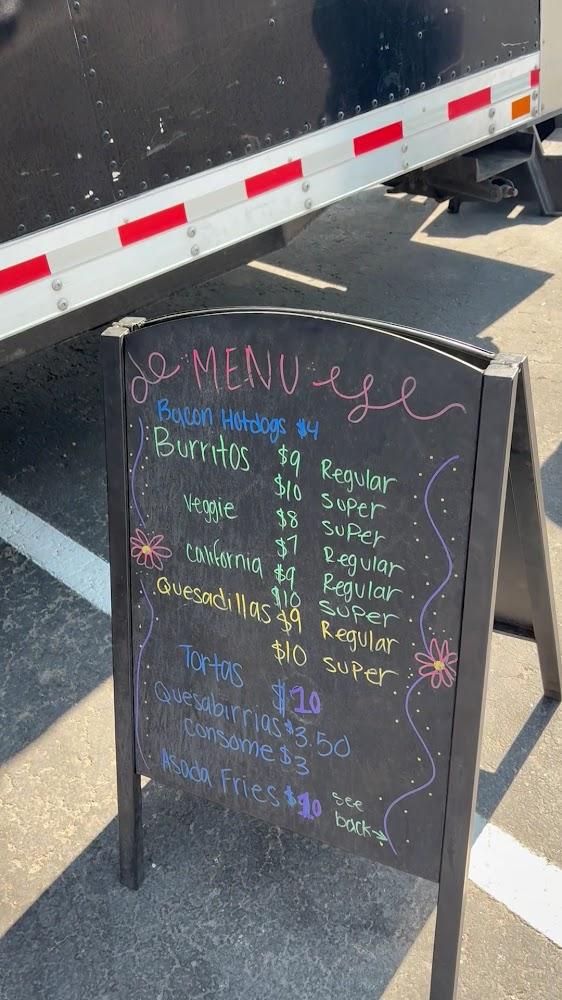 MENU
Bacon Hotdogs $4
Burritos $9 Regular
$10 Super
Veggie $8 Super
$7 Regular
California $9 Regular
$10 Super
Quesadillas $9 Regular
$10 Super
Tortas $10
Quesabirrias $3.50
Consome $3
Asada Fries $10
see
back→